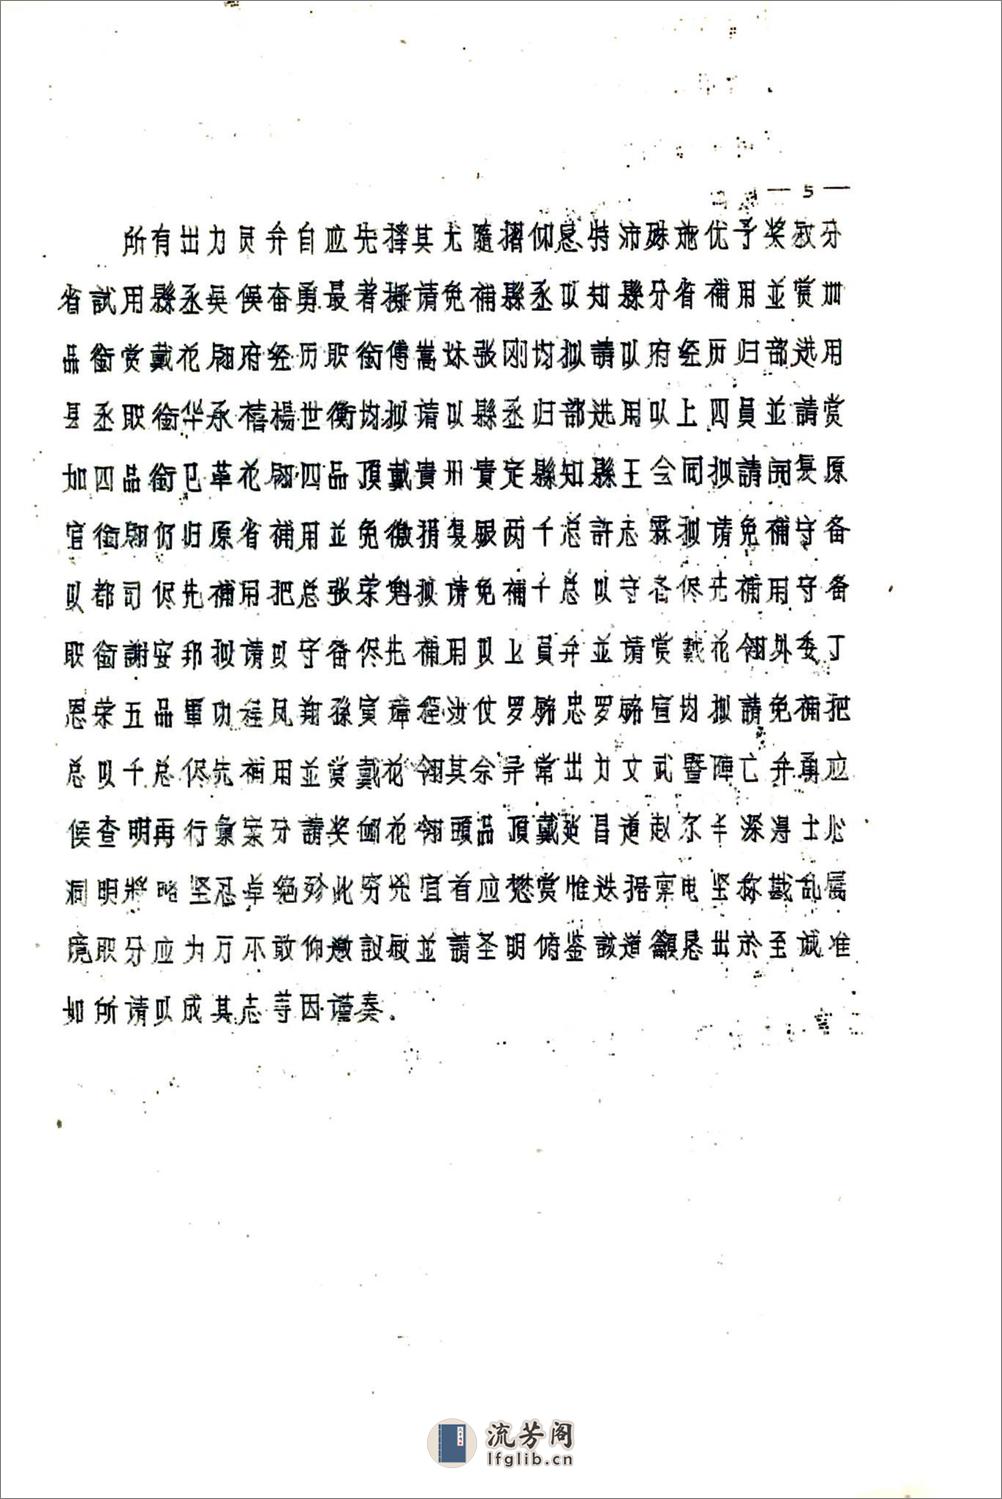 — 5 —
所有出力员弁自应先择其尤随摺仰恳特沛殊施优予奖叙分
省試用縣丞吳俣奋勇最著擬请免補縣丞以知縣分省補用並赏加
品銜赏戴花翎府经历职銜傅嵩炑张刚均拟請以府经历归部选用
县丞职銜华承禧楊世衡均拟请以縣丞归部选用以上四員並請赏
加四品銜已革花翎四品頂戴貴州貴定縣知縣王会同拟請開复原
官銜翎仍归原省補用並免缴捐复銀两千总許志霖拟请免補守备
以都司侭先補用把总张荣魁拟请免補千总以守备侭先補用守备
职銜謝安邦拟请以守备侭先補用以上員弁並請赏戴花翎外委丁
恩荣五品軍功程凤翔孫寅璋程汝仗罗鏘忠罗鏘宣均拟請免補把
总以千总侭先補用並赏戴花翎其余异常出力文武暨陣亡弁勇应
候查明再行彙案分請奖卹花翎頭品頂戴建昌道赵尔丰深得士心
洞明將略坚忍卓绝殄此穷兇宜者应懋赏惟迭据禀电坚称戡乱属
境职分应为万不敢仰邀議敍並請圣明俯鉴該道籲恳出於至诚准
如所请以成其志等因谨奏.
流芳阁
lfglib.cn